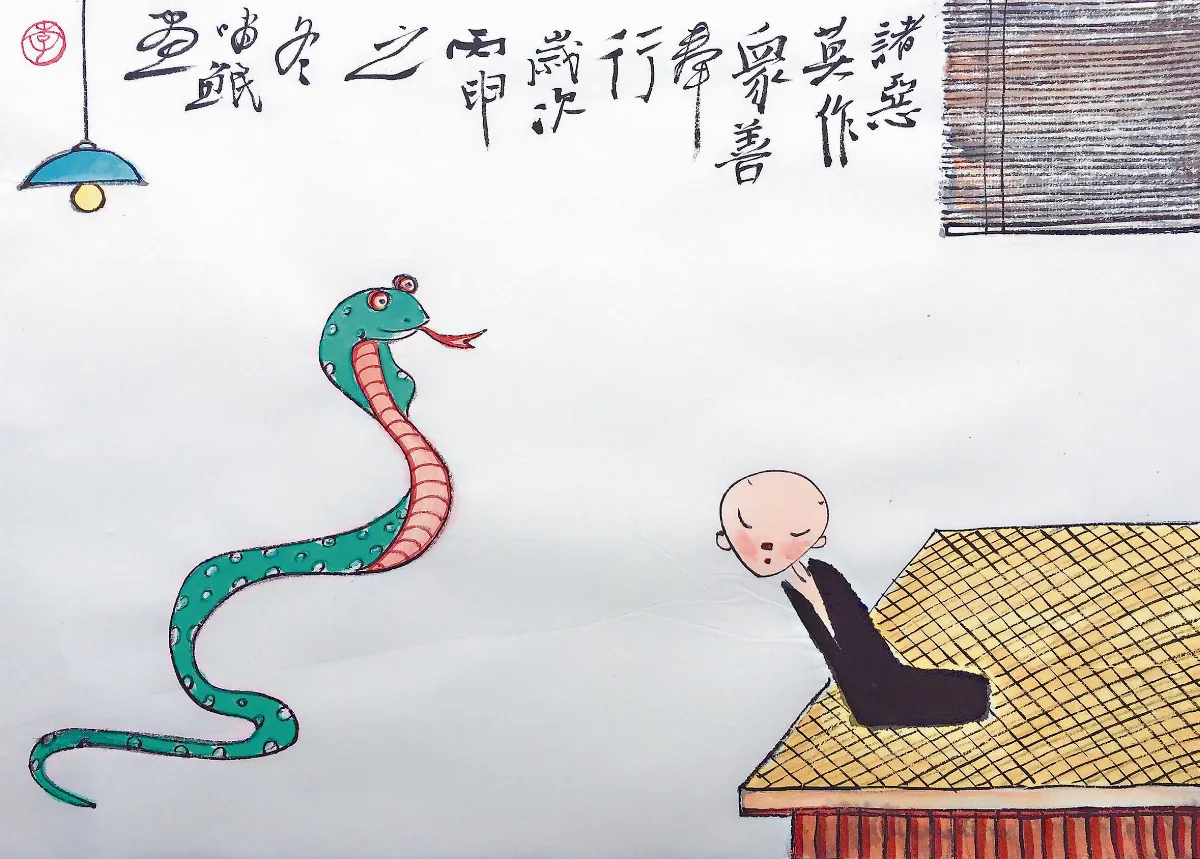 諸惡
莫作
眾善
奉
行
歲次
丙申
之
冬
畫
李